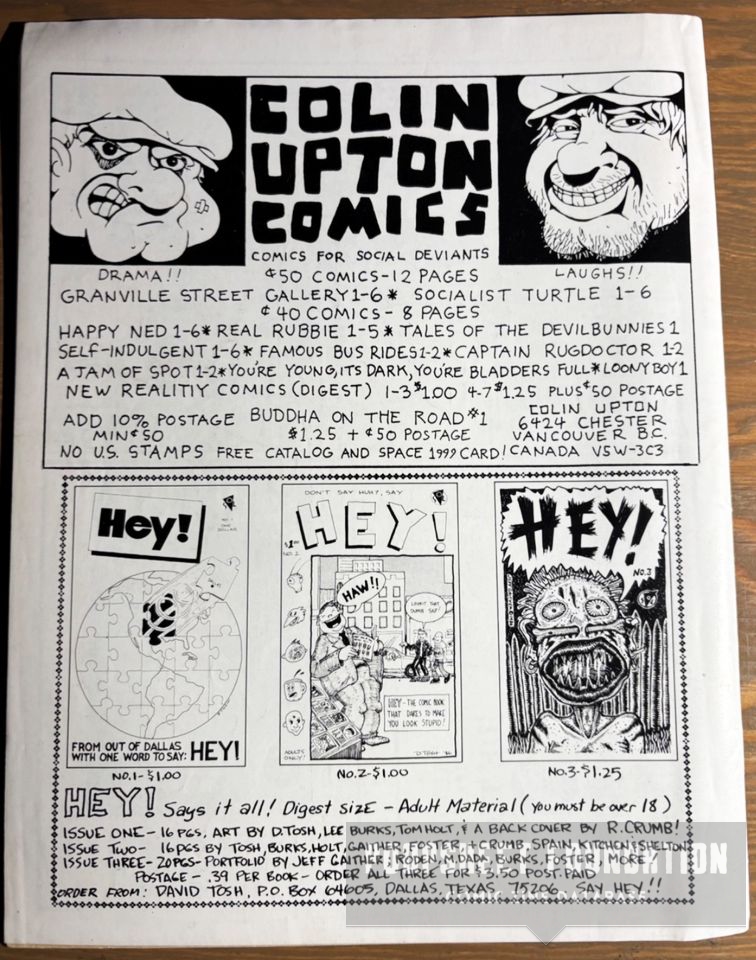 COLIN
UPTON
COMICS
COMICS FOR SOCIAL DEVIANTS
DRAMA!!
¢50 COMICS-12 PAGES
LAUGHS!!
GRANVILLE STREET GALLERY 1-6 * SOCIALIST TURTLE 1-6
¢40 COMICS- 8 PAGES
HAPPY NED 1-6* REAL RUBBIE 1-5* TALES OF THE DEVILBUNNIES 1
SELF-INDULGENT 1-6* FAMOUS BUS RIDES 1-2* CAPTAIN RUGDOCTOR 1-2
A JAM OF SPOT 1-2* YOU'RE YOUNG, ITS DARK, YOU'RE BLADDERS FULL* LOONY BOY 1
NEW REALITIY COMICS (DIGEST) 1-3 $1.00 4-7 $1.25 PLUS ¢50 POSTAGE
ADD 10% POSTAGE
MIN ¢50
BUDDHA ON THE ROAD #1
$1.25 + ¢50 POSTAGE
COLIN UPTON
6424 CHESTER
VANCOUVER B.C.
CANADA V5W-3C3
NO U.S. STAMPS FREE CATALOG AND SPACE 1999 CARD!
Hey!
NO. 1
ONE
DOLLAR
FROM OUT OF DALLAS
WITH ONE WORD TO SAY: HEY!
NO.1-$1.00
DON'T SAY HUH?, SAY
HEY!
$1.00
NO. 2
HAW!!
LOOKIT THAT
DUMB SAP!
HEY-THE COMIC BOOK
THAT DARES TO MAKE
YOU LOOK STUPID!
ADULTS
ONLY!
D.TOSH '86
NO.2-$1.00
HEY!
NO.3
NO.3-$1.25
HEY! Says it all! Digest size - Adult Material (you must be over 18)
ISSUE ONE- 16 PGS, ART BY D.TOSH, LEE BURKS, TOM HOLT, & A BACK COVER BY R. CRUMB!
ISSUE TWO- 16 PGS BY TOSH, BURKS, HOLT, GAITHER, FOSTER, R. CRUMB, SPAIN, KITCHEN & SHELTON
ISSUE THREE- 20 PGS- PORTFOLIO BY JEFF GAITHER, RODEN, M.DADA, BURKS, FOSTER, MORE
POSTAGE - .39 PER BOOK - ORDER ALL THREE FOR $3.50 POST PAID
ORDER FROM: DAVID TOSH, P.O. BOX 64605, DALLAS, TEXAS 75206. SAY HEY!!